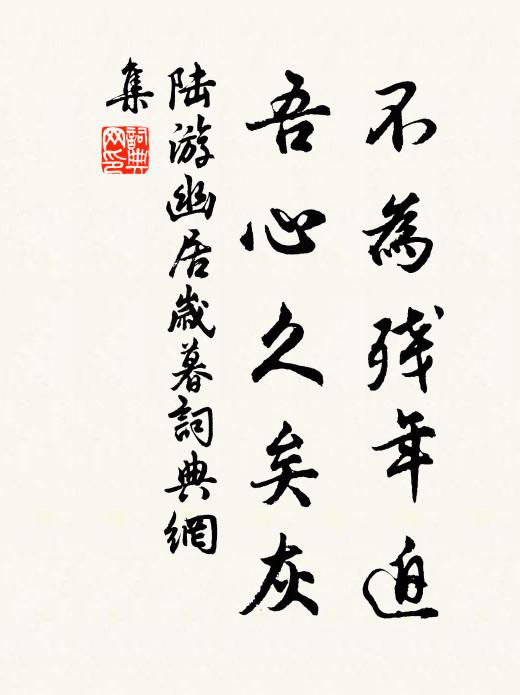 不為殘年迫
吾心久矣灰
陸游幽居歲暮詞典網
集
詞典
网印